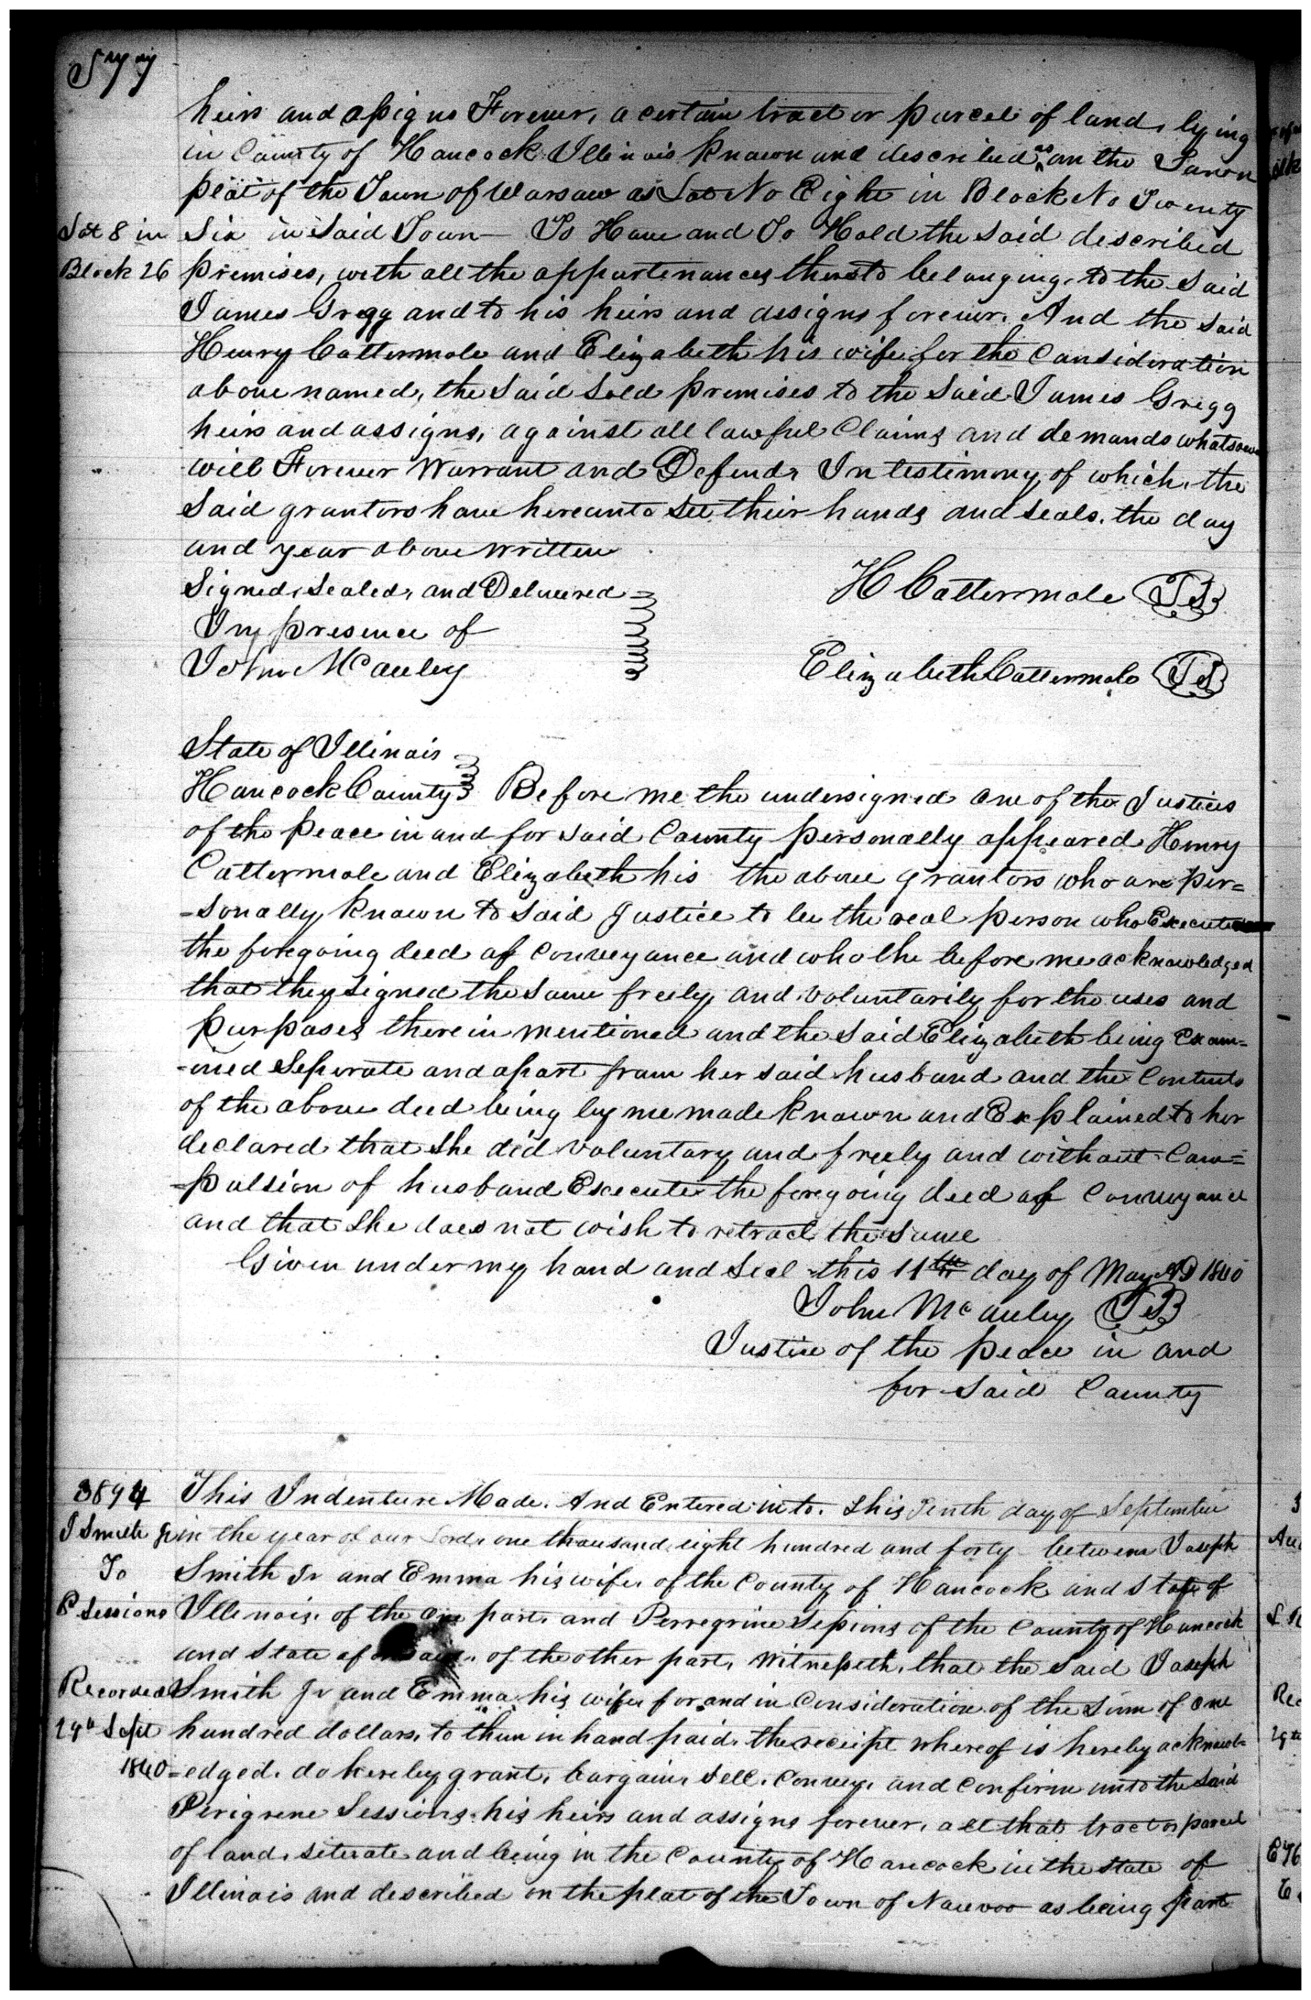 577
heirs and assigns Forever, a certain tract or parcel of land, lying
in County of Hancock Illinois known and described as on the Town
plat of the Town of Warsaw as Lot No Eight in Block No Twenty
Lot 8 in Six in Said Town — To Have and To Hold the Said described
Block 26 premises, with all the appurtenances thereto belonging, to the Said
James Gregg and to his heirs and assigns forever. And the said
Henry Cattermole and Elizabeth his wife for the Consideration
above named, the Said Sold premises to the Said James Gregg
heirs and assigns, against all lawful Claims and demands whatsoever
will Forever Warrant and Defend, In testimony of which, the
Said grantors have hereunto Set their hands and seals, the day
and year above written
Signed, Sealed, and Delivered
In presence of
John McAuley
H Cattermole
Elizabeth Cattermole
State of Illinois
Hancock County Before me the undersigned one of the Justices
of the peace in and for Said County personally appeared Henry
Cattermole and Elizabeth his the above grantors who are per=
=sonally known to Said Justice to be the real person who Executed
the foregoing deed of Conveyance and who the before me acknowledged
that they Signed the Same freely and voluntarily for the uses and
purposes therein mentioned and the Said Elizabeth being Exam=
=ined Seperate and apart from her Said husband and the Contents
of the above deed being by me made known and Explained to her
declared that She did voluntary and freely and without Com=
=pulsion of husband Execute the foregoing deed of Conveyance
and that She does not wish to retract the Same
Given under my hand and Seal this 11th day of May AD 1840
John McAuley
Justice of the peace in and
for Said County
3894 This Indenture Made And Entered into this Tenth day of September
J Smith Jr in the year of our Lord, one thousand eight hundred and forty between Joseph
To Smith Jr and Emma his wife, of the County of Hancock and State of
P Sessions Illinois, of the one part, and Perregrine Sessions of the County of Hancock
and State of of the other part, Witnesseth, that the Said Joseph
Recorded Smith Jr and Emma his wife for and in Consideration of the Sum of one
29th Sept hundred dollars, to them in hand paid, the receipt whereof is hereby acknowl=
1840 =edged, do hereby grant, bargain, Sell, Convey, and Confirm unto the Said
Perigrine Sessions, his heirs and assigns forever, all that tract or parcel
of land, situate and being in the County of Hancock in the State of
Illinois and described on the plat of the Town of Nauvoo as being part